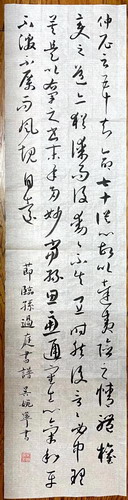 仲尼云五十知命七十從心故以達夷險之情體權
變之道亦猶謀而後動動不失宜時然後言言必中理
矣是以右軍之書末年多妙當緣思慮通審志氣和平
不激不厲而風規自遠
節臨孫過庭書譜 吳婉
書